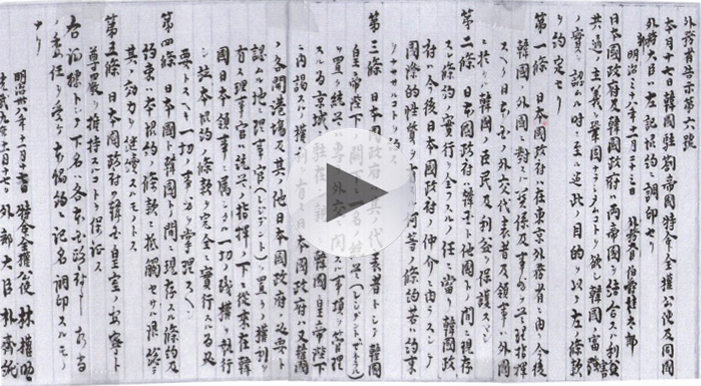 外務省告示第六號
本月十七日韓國駐劄帝國特命全權公使及同國
外務大臣ハ左記協約ニ調印セリ
明治三十八年十一月二十三日 外務大臣伯爵桂太郎
日本國政府及韓國政府ハ兩帝國ヲ結合スル利害
共通ノ主義ヲ鞏固ナラシメムコトヲ欲シ韓國ノ富強
ノ實ヲ認ムル時ニ至ル迄此ノ目的ヲ以テ左ノ條款
ヲ約定セリ
第一條 日本國政府ハ在東京外務省ニ由リ今後
韓國ノ外國ニ對スル關係及事務ヲ監理指揮
スヘク日本國ノ外交代表者及領事ハ外國
ニ於ケル韓國ノ臣民及利益ヲ保護スヘシ
第二條 日本國政府ハ韓國ト他國トノ間ニ現存
スル條約ノ實行ヲ全フスルノ任ニ當リ韓國政
府ハ今後日本國政府ノ仲介ニ由ラスシテ
國際的性質ヲ有スル何等ノ條約若ハ約束
ヲナササルコトヲ約ス
第三條 日本國政府ハ其ノ代表者トシテ韓國
皇帝陛下ノ闕下ニ一名ノ統監
ヲ置ク統監ハ專ラ外交ニ關スル事項ヲ管理
スル為京城ニ駐在シ親シク韓國皇帝陛下
ニ內謁スルノ權利ヲ有ス日本國政府ハ又韓國
ノ各開港場及其ノ他日本國政府ノ必要ト
認ムル地ニ理事官(レジデント)ヲ置クノ權利ヲ
有ス理事官ハ統監ノ指揮ノ下ニ從來在韓
國日本領事ニ屬シタル一切ノ職權ヲ執行
シ並本協約ノ條款ヲ完全ニ實行スル為必
要トスヘキ一切ノ事務ヲ掌理スヘシ
第四條 日本國ト韓國トノ間ニ現存スル條約及
約束ハ本協約ノ條款ニ抵觸セサル限總テ
其ノ効力ヲ繼續スルモノトス
第五條 日本國政府ハ韓國皇室ノ安寧ト
尊嚴ヲ維持スルコトヲ保證ス
右證據トシテ下名ハ各本國政府ヨリ相當
ノ委任ヲ受ケ本協約ニ記名調印スルモノ
ナリ
明治卅八年十一月十七日 特命全權公使 林權助
光武九年十一月十七日 外部大臣 朴齊純